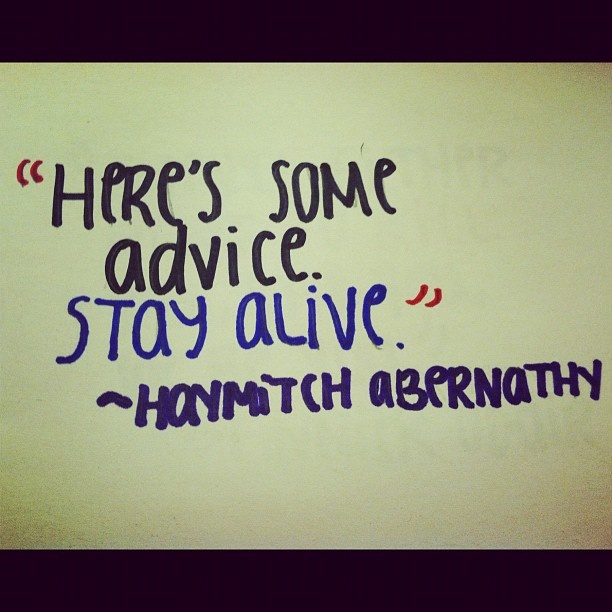 “HeRe's SOMe
advice.
STay aLive.”
~HayMiTCH aBeRNaTHY